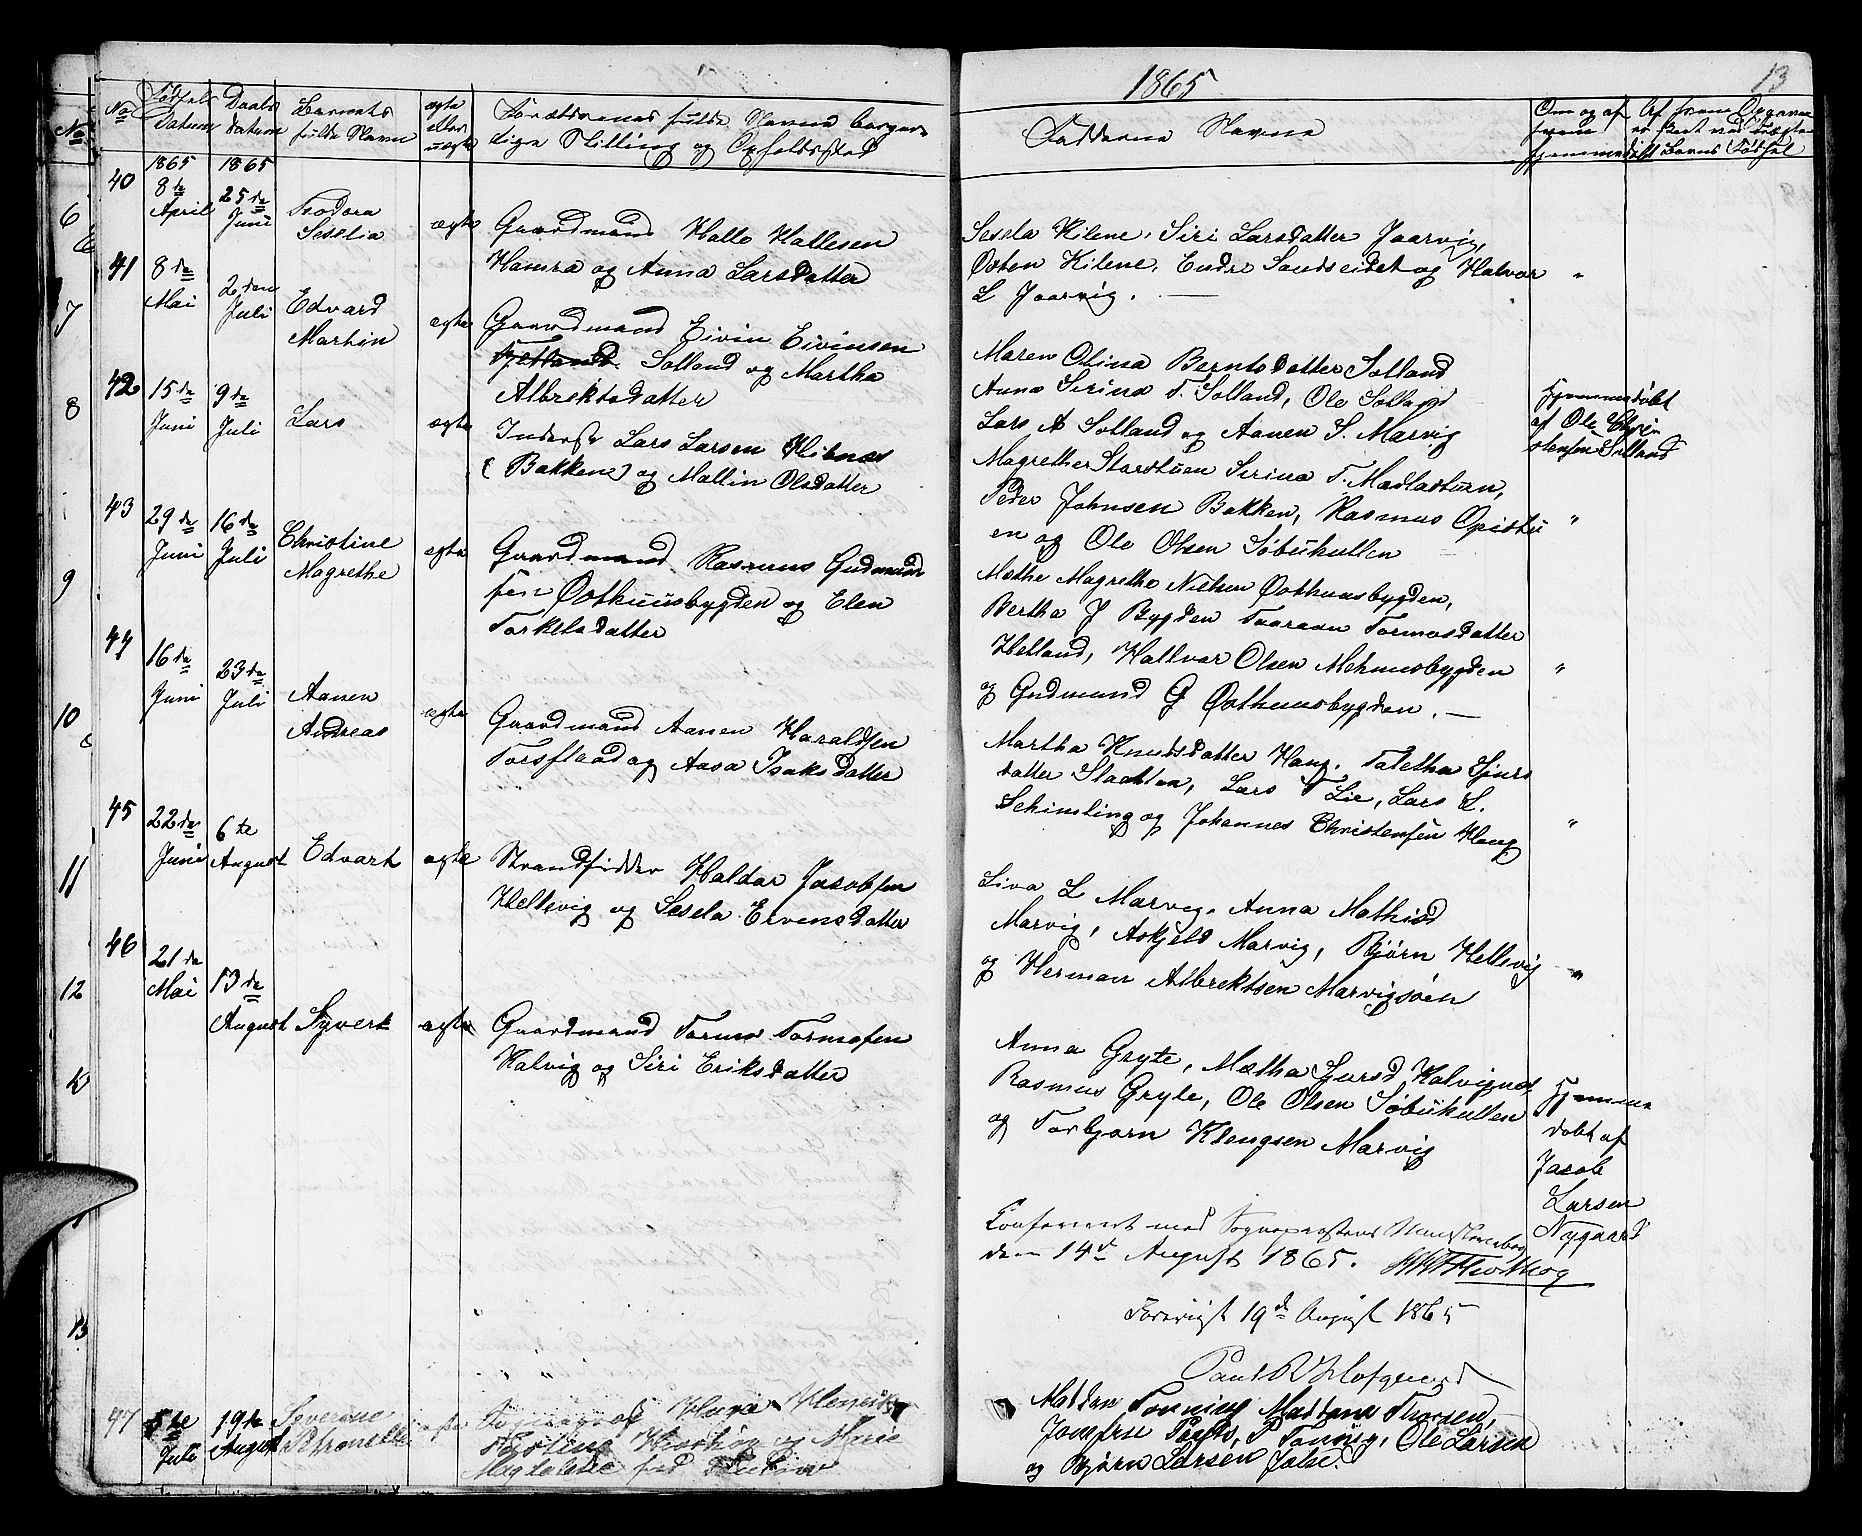 1865
13
No
Fødsels Datum
Daabs datum
Barnets fulde Navn
ægte eller uægte
Forældrenes fulde Navne borger-
lige Stilling og Opholdssted
Faddernes Navne
Om og af hvem hjemmedøbt
1865 1865
40 8de April 25de Juni
Seselia
ægte
Gaardmand Halle Hallesen
Hamra og Anna Larsdatter
Sesela Kilene, Siri Larsdatter Jaarvig,
Østen Kilene, Endre Sandseidet og Halvor
L Jaarvig.
"
41 8de Mai 2den Juli
Edvard
Martin
ægte
Gaardmand Eivin Eivinsen
Solland og Martha
Albrektsdatter
Maren Olina Berntsdatter Solland
Anna Serina T. Solland, Ole Solland
Lars A Solland og Aanen S. Marvig
Hjemmedøbt
af Ole Chri-
stensen Solland
42 15de Juni 9de Juli
Lars
ægte
Inderst Lars Larsen Hibnes
(Bakkene) og Mallin Olsdatter
Magrethe Storstuen Serina T.
Peder Johnsen Bakken, Rasmus Opistu
en og Ole Olsen Søbükullen
"
43 29de Juni 16de Juli
Christine
Magrethe
ægte
Gaardmand Rasmus Gudmund
sen Østhuusbygden og Elen
Torkelsdatter
Mæthe Magrethe Nielsen Østhuusbygden,
Bertha J Bygden Tormosdatter
Helland, Hallvar Olsen Mehuusbygden
og Gudmund G Østhuusbygden.
"
44 16de Juni 23de Juli
Aanen
Andreas
ægte
Gaardmand Aanen Haraldsen
Torsflaad og Aasa Isaksdatter
Martha Knudsdatter Haug. Taletha Sjurs
datter Lars T Lie, Lars L.
Schimling og Johannes Christensen Haug
"
45 22de Juni 6te August
Edvart
ægte
Strandsidder Haldor Jacobsen
Hellevig og Sesela Eivensdatter
Siva L Marvig. Anna Mathisd
Marvig, Askjeld Marvig, Bjørn Hellevig
og Herman Albrektsen Marvigsøen
"
46 21de Mai 13de August
Syvert
ægte
Gaardmand Tormo Tormosen
Halvig og Siri Eriksdatter
Anna Gryte, Mætha Sjursd Kalvignes
Rasmus Gryte, Ole Olsen Søbükullen
og Torbjørn Klengsen Marvig
Hjemme
døbt af
Jacob
Larsen
Nygaard
Confereret med Sognepræstens Ministerialbog
den 14de August 1865.
Foreviist 19de August 1865
47 5te Juli 19de August
Severine
Petronelle
Hans Henrik
og Marie
Magdalene
Madam Madame
Ole Larsen
og Bjørn Larsen
6
7
8
9
10
11
12
13